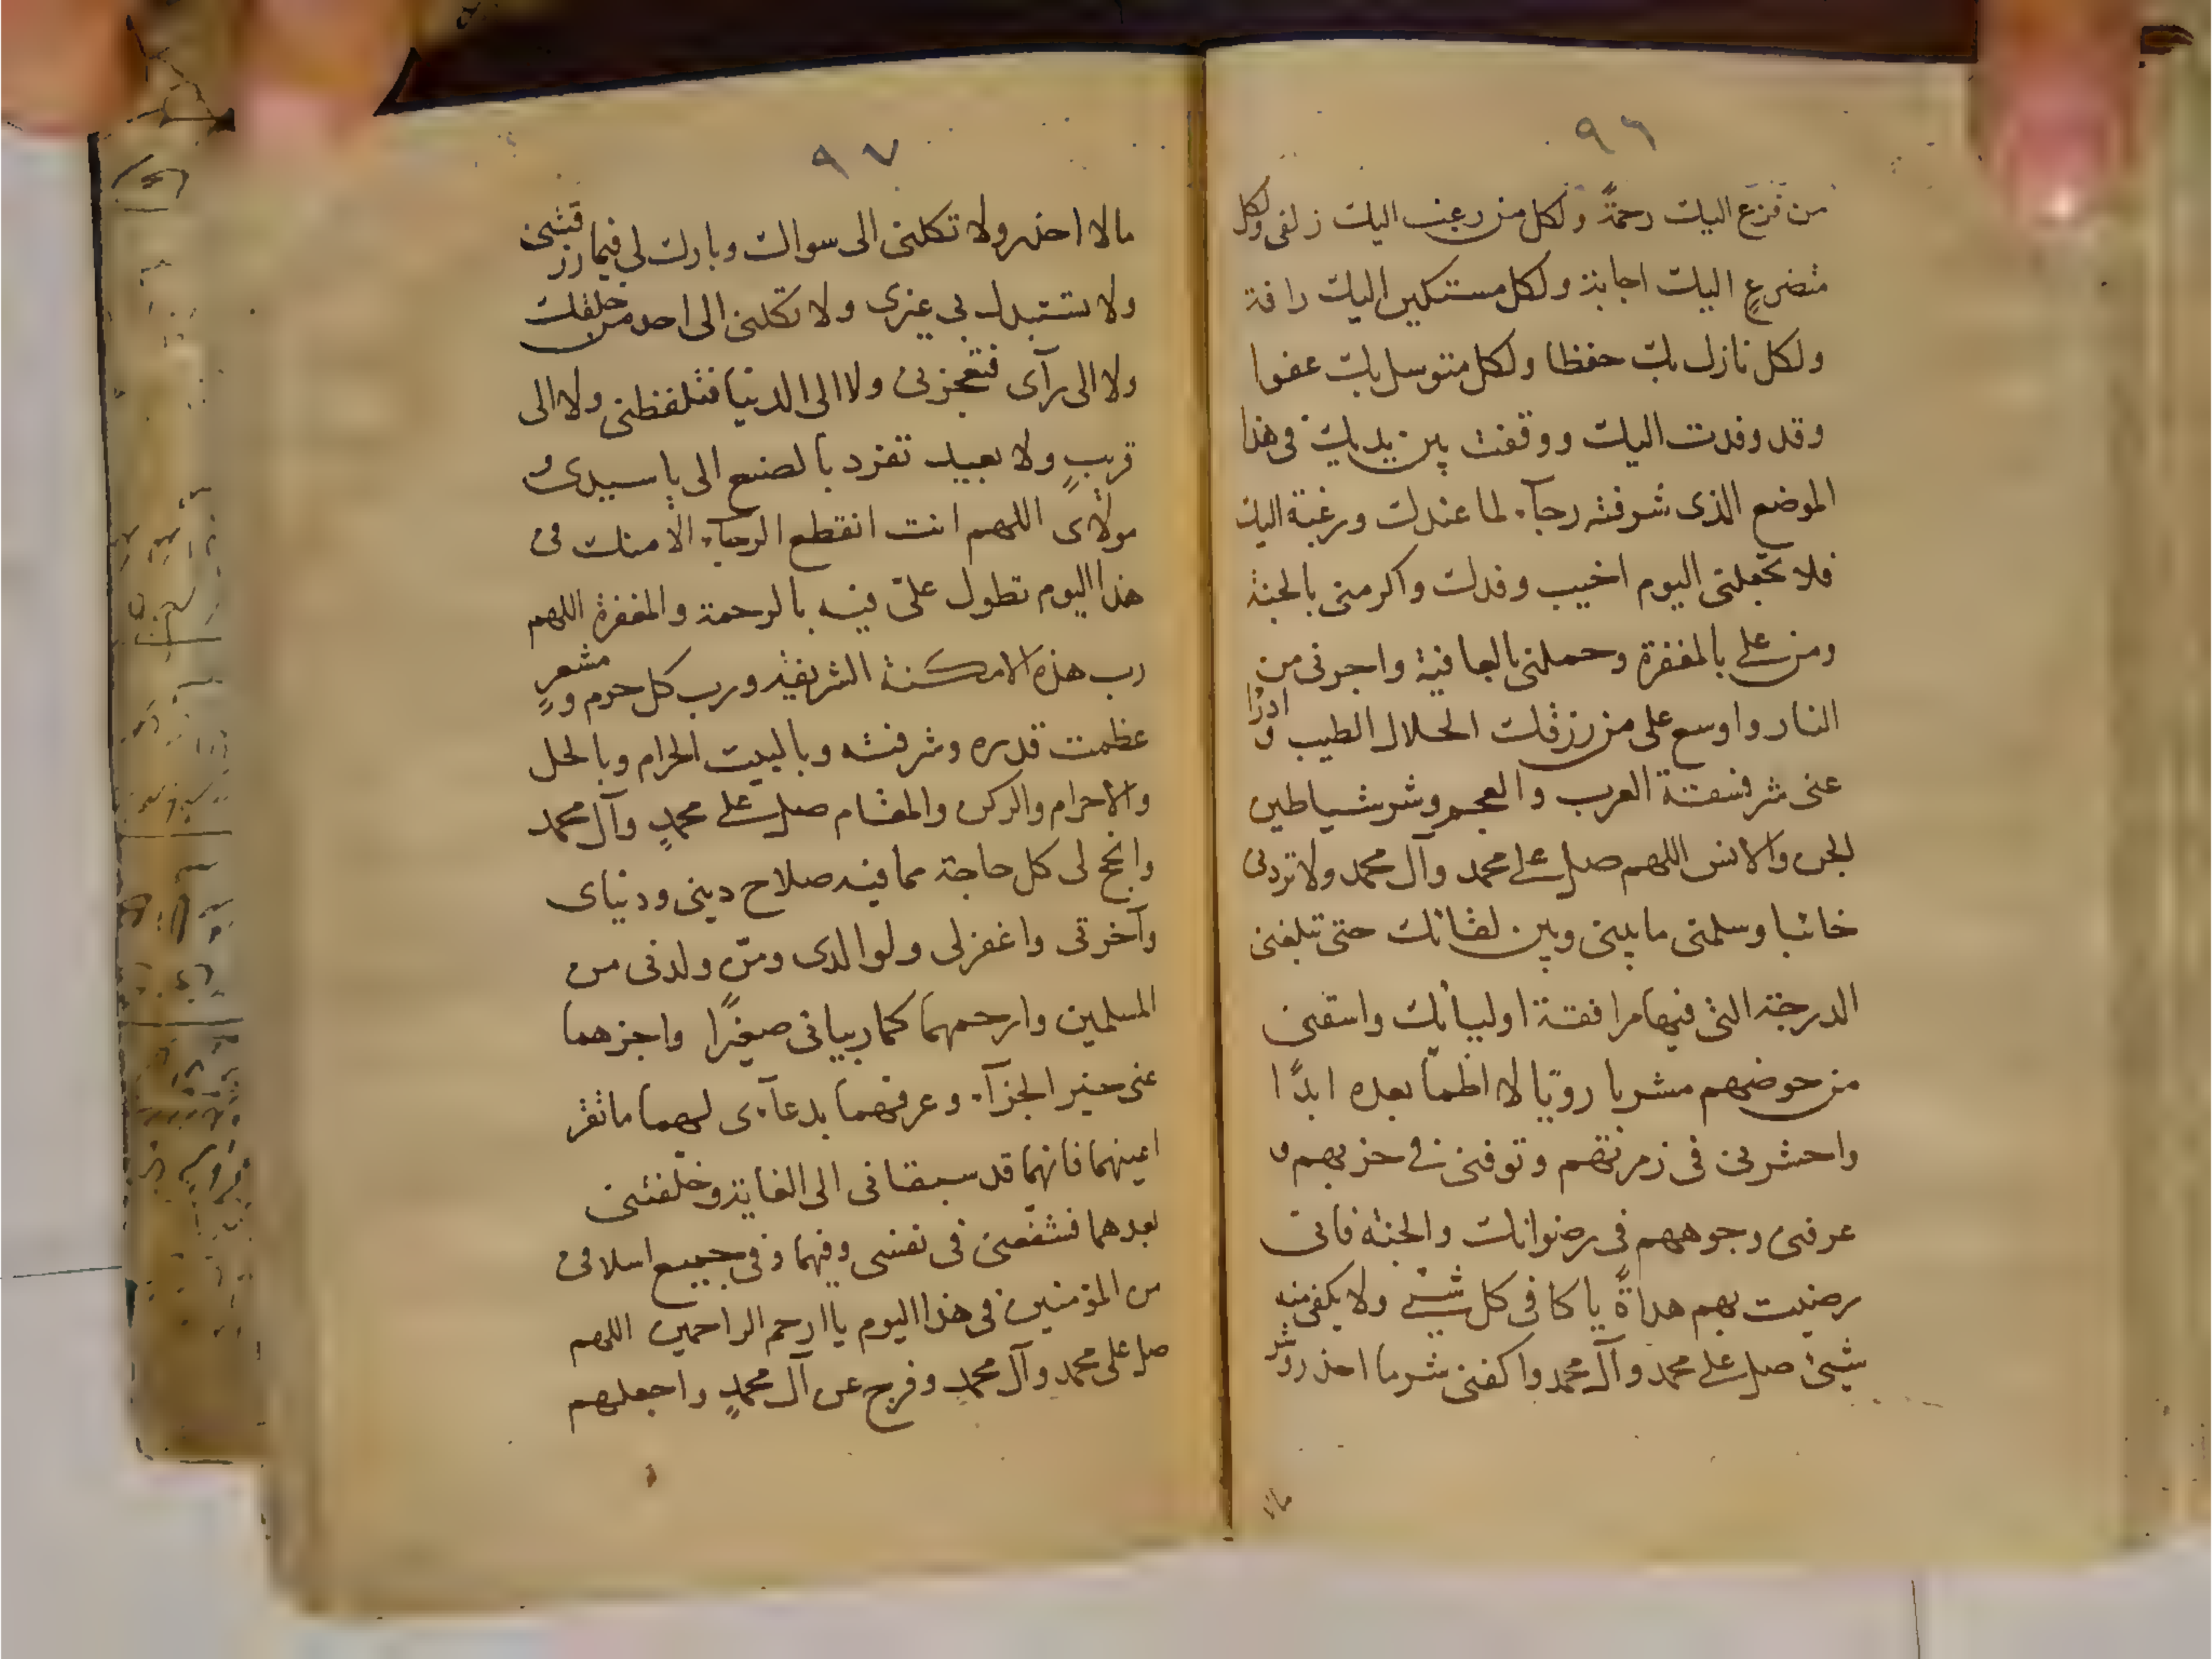 ٩٦
من فزع اليك رحمةً ولكل من رغب اليك زلفى ولكل
متضرعٍ اليك اجابة ولكل مستكين اليك رافة
ولكل نازل بك حفظا ولكل متوسل بك عفوا
وقد وفدت اليك ووقفت بين يديك فى هذا
الموضع الذى شرفته رجآء لما عندك ورغبة اليك
فلا تجعلنى اليوم اخيب وفدك واكرمنى بالجنة
ومن على بالمغفرة وجملنى بالعافية واجرنى من
النار واوسع على من رزقك الحلال الطيب و ادرا
عنى شر فسقة العرب والعجم وشر شياطين
الجن والانس اللهم صل على محمد وآل محمد ولا تردنى
خائبا وسلمنى ما بينى وبين لقائك حتى تبلغنى
الدرجة التى فيها مرافقة اوليائك واسقنى
من حوضهم مشربا رويّا لا اظمأ بعده ابدًا
واحشرنى فى زمرتهم وتوفنى فى حزبهم و
عرفنى وجوههم فى رضوانك والجنة فانى
رضيت بهم هداةً يا كافى كل شئ ولا يكفى منه
شيئ صل على محمد وآل محمد واكفنى شر ما احذر وشر
مالا
٩٧
مالا احذر ولا تكلنى الى سواك وبارك لى فيما رزقتنى
ولا تستبدل بى غيرى ولا تكلنى الى احد من خلقك
ولا الى رآى فتعجزنى ولا الى الدنيا فتلفظنى ولا الى
قريبٍ ولا بعيد تفرد بالصنع الى يا سيدى و
مولاى اللهم انت انقطع الرجآء الا منك فى
هذا اليوم تطول علىّ فيه بالرحمة والمغفرة اللهم
رب هذه الامكنة الشريفة ورب كل حرم ومشعرٍ
عظمت قدره وشرفته وبالبيت الحرام وبالحل
والاحرام والركن والمقام صل على محمدٍ وآل محمد
وانجح لى كل حاجة مما فيه صلاح دينى ودنياى
وآخرتى واغفر لى ولوالدى ومن ولدنى من
المسلمين وارحمهما كما ربيانى صغيرًا واجزهما
عنى خير الجزآء وعرفهما بدعآءى لهما ما تقر
اعينهما فانهما قد سبقانى الى الغاية وخلّفتنى
بعدهما فشفّعنى فى نفسى وفيهما وفى جميع اسلافى
من المؤمنين فى هذا اليوم يا ارحم الراحمين اللهم
صل على محمد وآل محمدٍ وفرج عن آل محمدٍ واجعلهم